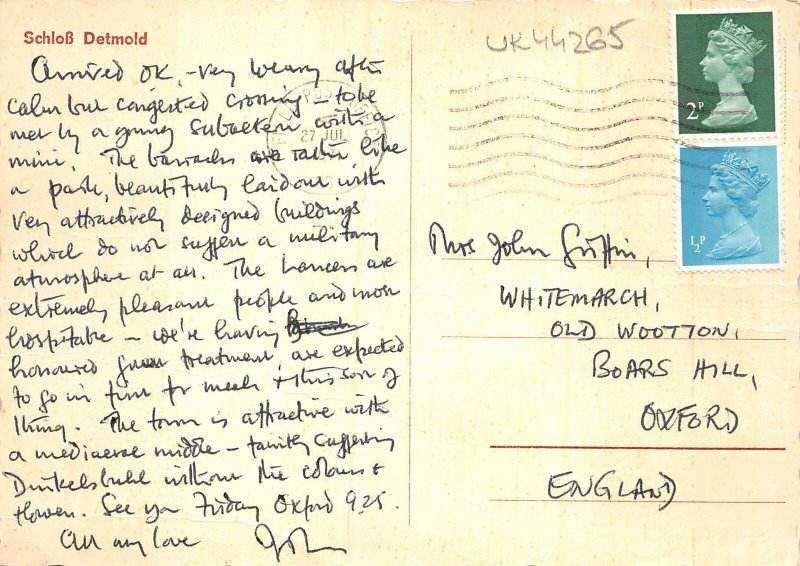 Schloß Detmold
UK44265
2P
½P
27 JUL
Arrived OK, - very weary after
calm but congested crossing - to be
met by a young subaltern with a
mini. The barracks are rather like
a park, beautifully laid out with
very attractively designed buildings
which do not suggest a military
atmosphere at all. The Lancers are
extremely pleasant people and most
hospitable - we're having
honoured guest treatment, are expected
to go in first for meals & this sort of
thing. The town is attractive with
a mediaeval middle - faintly suggesting
Dinkelsbuhl without the colours &
flowers. See you Friday Oxford 9.25.
All my love John
Mrs John Griffin,
WHITEMARCH,
OLD WOOTTON,
BOARS HILL,
OXFORD
ENGLAND